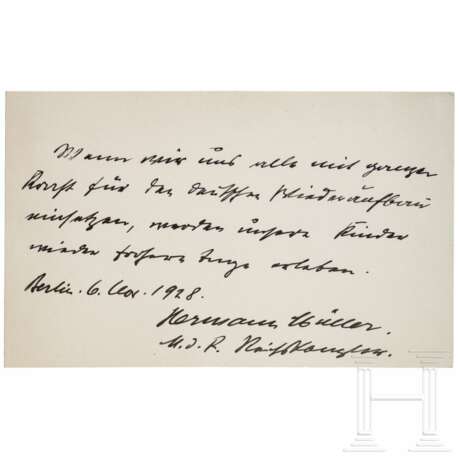 Wenn wir uns alle mit ganzer
Kraft für den deutschen Wiederaufbau
einsetzen, werden unsere Kinder
wieder frohere Tage erleben.
Berlin. 6. Nov. 1928.
Hermann Müller.
M.d.R. Reichskanzler.
H